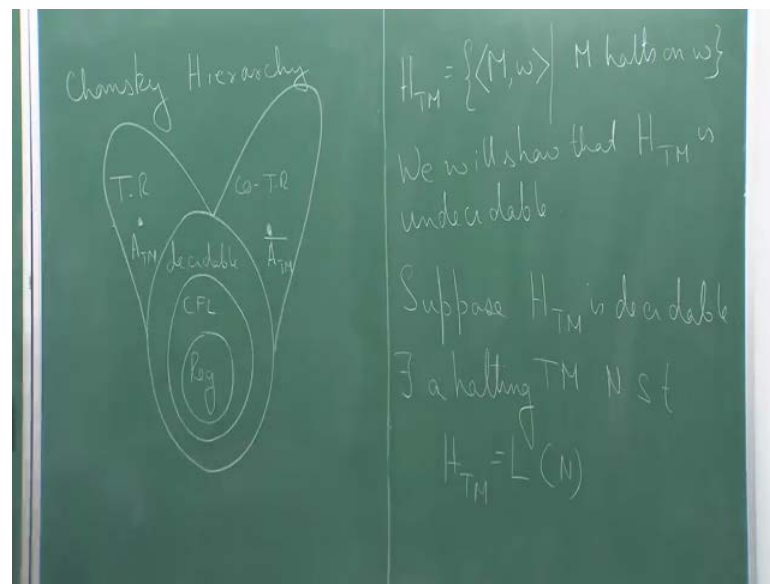 Chomsky Hierarchy
T-R
co-T-R
A_TM
decidable
\overline{A_TM}
CFL
Reg
H_TM = {⟨M,w⟩ | M halts on w}
We will show that H_TM is
undecidable
Suppose H_TM is decidable
∃ a halting TM N s t
H_TM = L(N)